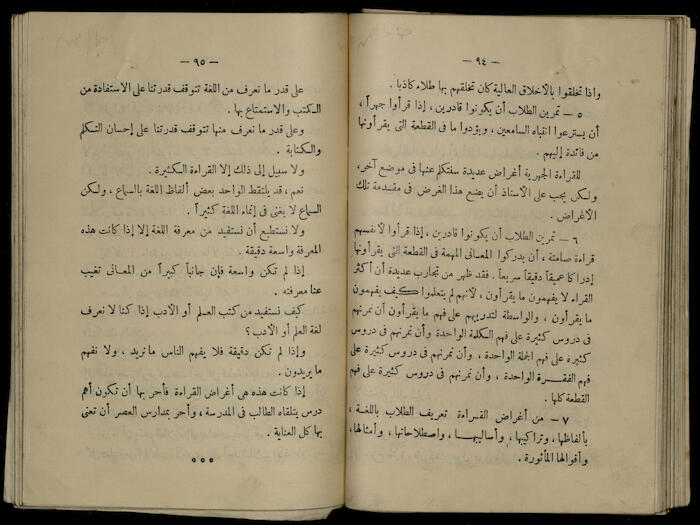 — ٩٤ —
واذا تخلقوا بالأخلاق العالية كان تخلقهم بها طلاء كاذبا.
٥ — تمرين الطلاب أن يكونوا قادرين، إذا قرأوا جهراً،
أن يسترعوا انتباه السامعين، ويؤدوا ما فى القطعة التى يقرأونها
من فائدة إليهم.
للقراءة الجهرية أغراض عديدة سنتكلم عنها فى موضع آخر،
ولكن يجب على الأستاذ أن يضع هذا الغرض فى مقدمة تلك
الأغراض.
٦ — تمرين الطلاب أن يكونوا قادرين، إذا قرأوا لأنفسهم
قراءة صامتة، أن يدركوا المعانى المهمة فى القطعة التى يقرأونها
إدراكا عميقاً دقيقاً سريعاً. فقد ظهر من تجارب عديدة أن أكثر
القراء لا يفهمون ما يقرأون، لأنهم لم يتعلموا كيف يفهمون
ما يقرأون، والواسطة لتدريبهم على فهم ما يقرأون أن نمرنهم
فى دروس كثيرة على فهم الكلمة الواحدة وأن نمرنهم فى دروس
كثيرة على فهم الجملة الواحدة، وأن نمرنهم فى دروس كثيرة على
فهم الفقرة الواحدة، وأن نمرنهم فى دروس كثيرة على فهم
القطعة كلها.
٧ — من أغراض القراءة تعريف الطلاب باللغة،
بألفاظها، وتراكيبها، وأساليبها، واصطلاحاتها، وأمثالها،
وأقوالها المأثورة.
— ٩٥ —
على قدر ما نعرف من اللغة تتوقف قدرتنا على الاستفادة من
الكتب والاستمتاع بها.
وعلى قدر ما نعرف منها تتوقف قدرتنا على إحسان التكلم
والكتابة.
ولا سبيل إلى ذلك إلا القراءة الكثيرة.
نعم، قد يلتقط الواحد بعض ألفاظ اللغة بالسماع، ولكن
السماع لا يغنى فى إنماء اللغة كثيراً.
ولا نستطيع أن نستفيد من معرفة اللغة إلا إذا كانت هذه
المعرفة واسعة دقيقة.
إذا لم تكن واسعة فإن جانباً كبيراً من المعانى تغيب
عنا معرفته.
كيف نستفيد من كتب العلم أو الأدب إذا كنا لا نعرف
لغة العلم أو الأدب؟
وإذا لم تكن دقيقة فلا يفهم الناس ما نريد، ولا نفهم
ما يريدون.
إذا كانت هذه هى أغراض القراءة فأحر بها أن تكون أهم
درس يتلقاه الطالب فى المدرسة، وأحر بمدارس العصر أن تعنى
بها كل العناية.
* * *